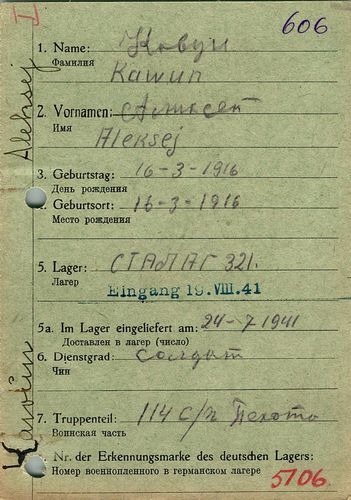 I 606
1. Name: Ковун
Фамилия
Kawun
2. Vornamen: Алексей
Имя
Aleksej
3. Geburtstag: 16-3-1916
День рождения
Geburtsort: 16-3-1916
Место рождения
5. Lager: СТАЛАГ 321.
Лагер
Eingang 19. VIII. 41
5a. Im Lager eingeliefert am: 24-7 1941
Доставлен в лагер (число)
6. Dienstgrad: солдат
Чин
7. Truppenteil: 114 с/п Пехота
Воинская часть
Nr. der Erkennungsmarke des deutschen Lagers:
Номер военнопленного в германском лагере 5106
Aleksej